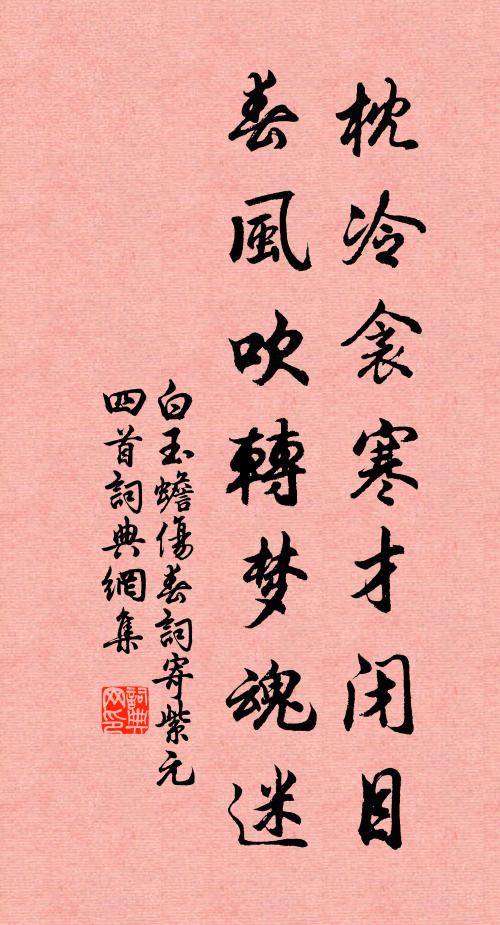 枕冷衾寒才闭目
春風吹轉梦魂迷
白玉蟾傷春詞寄紫元
四首詞典網集
詞典
网印